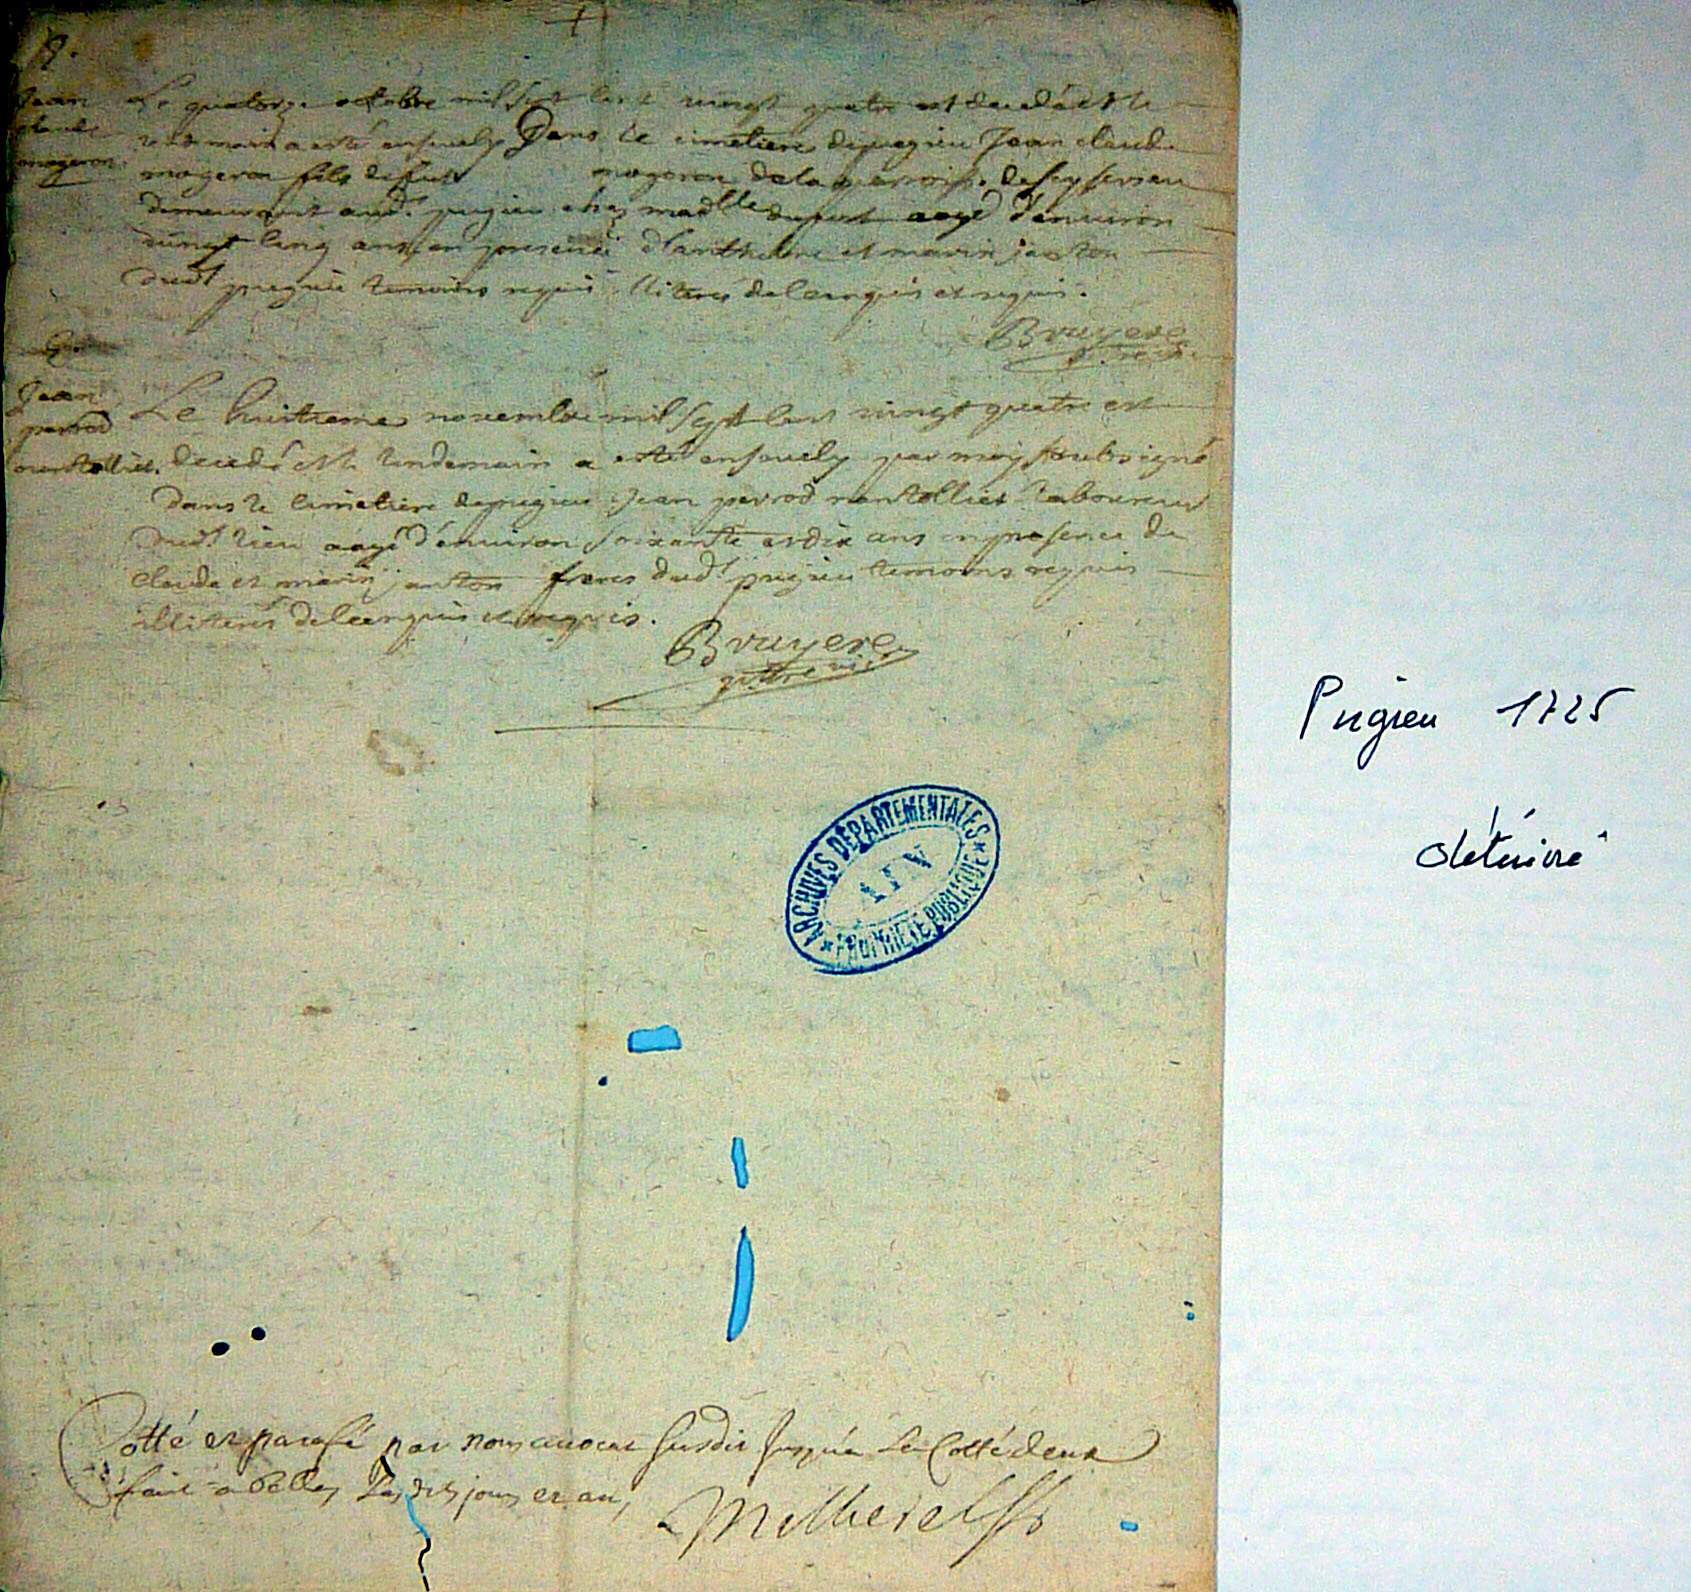 Jean
claude
mogeron
Le quatorze octobre mil sept cent vingt quatre est decedé et le
lendemain a esté ensevely Dans le cimetiere de pugieu Jean claude
mogeron fils de feu mogeron de la parroisse de
demeurant aud.t pugieu chez mad.lle dupont aagé d'environ
vingt cinq ans en presence d'anthelme et marin janton
dud.t pugieu temoins requis illiterés de ce enquis et requis.
Bruyere
Jean
perrod
nantolliet.
Le huitieme novembre mil sept cent vingt quatre est
decedé et le lendemain a esté ensevely par moy soubsigné
dans le cimetiere de pugieu Jean perrod nantolliet laboureur
dud.t lieu aagé d'environ soixante et dix ans en presence de
claude et marin janton freres dud.t pugieu temoins requis
illiterés de ce enquis et requis.
Bruyere
ARCHIVES DÉPARTEMENTALES
AIN
PROPRIÉTÉ PUBLIQUE
Pugieu 1725
détérioré
Cotté et parafé par nous avocat susdit jusqu'a la Cotté deux
fait a Belley les dits jours et an,